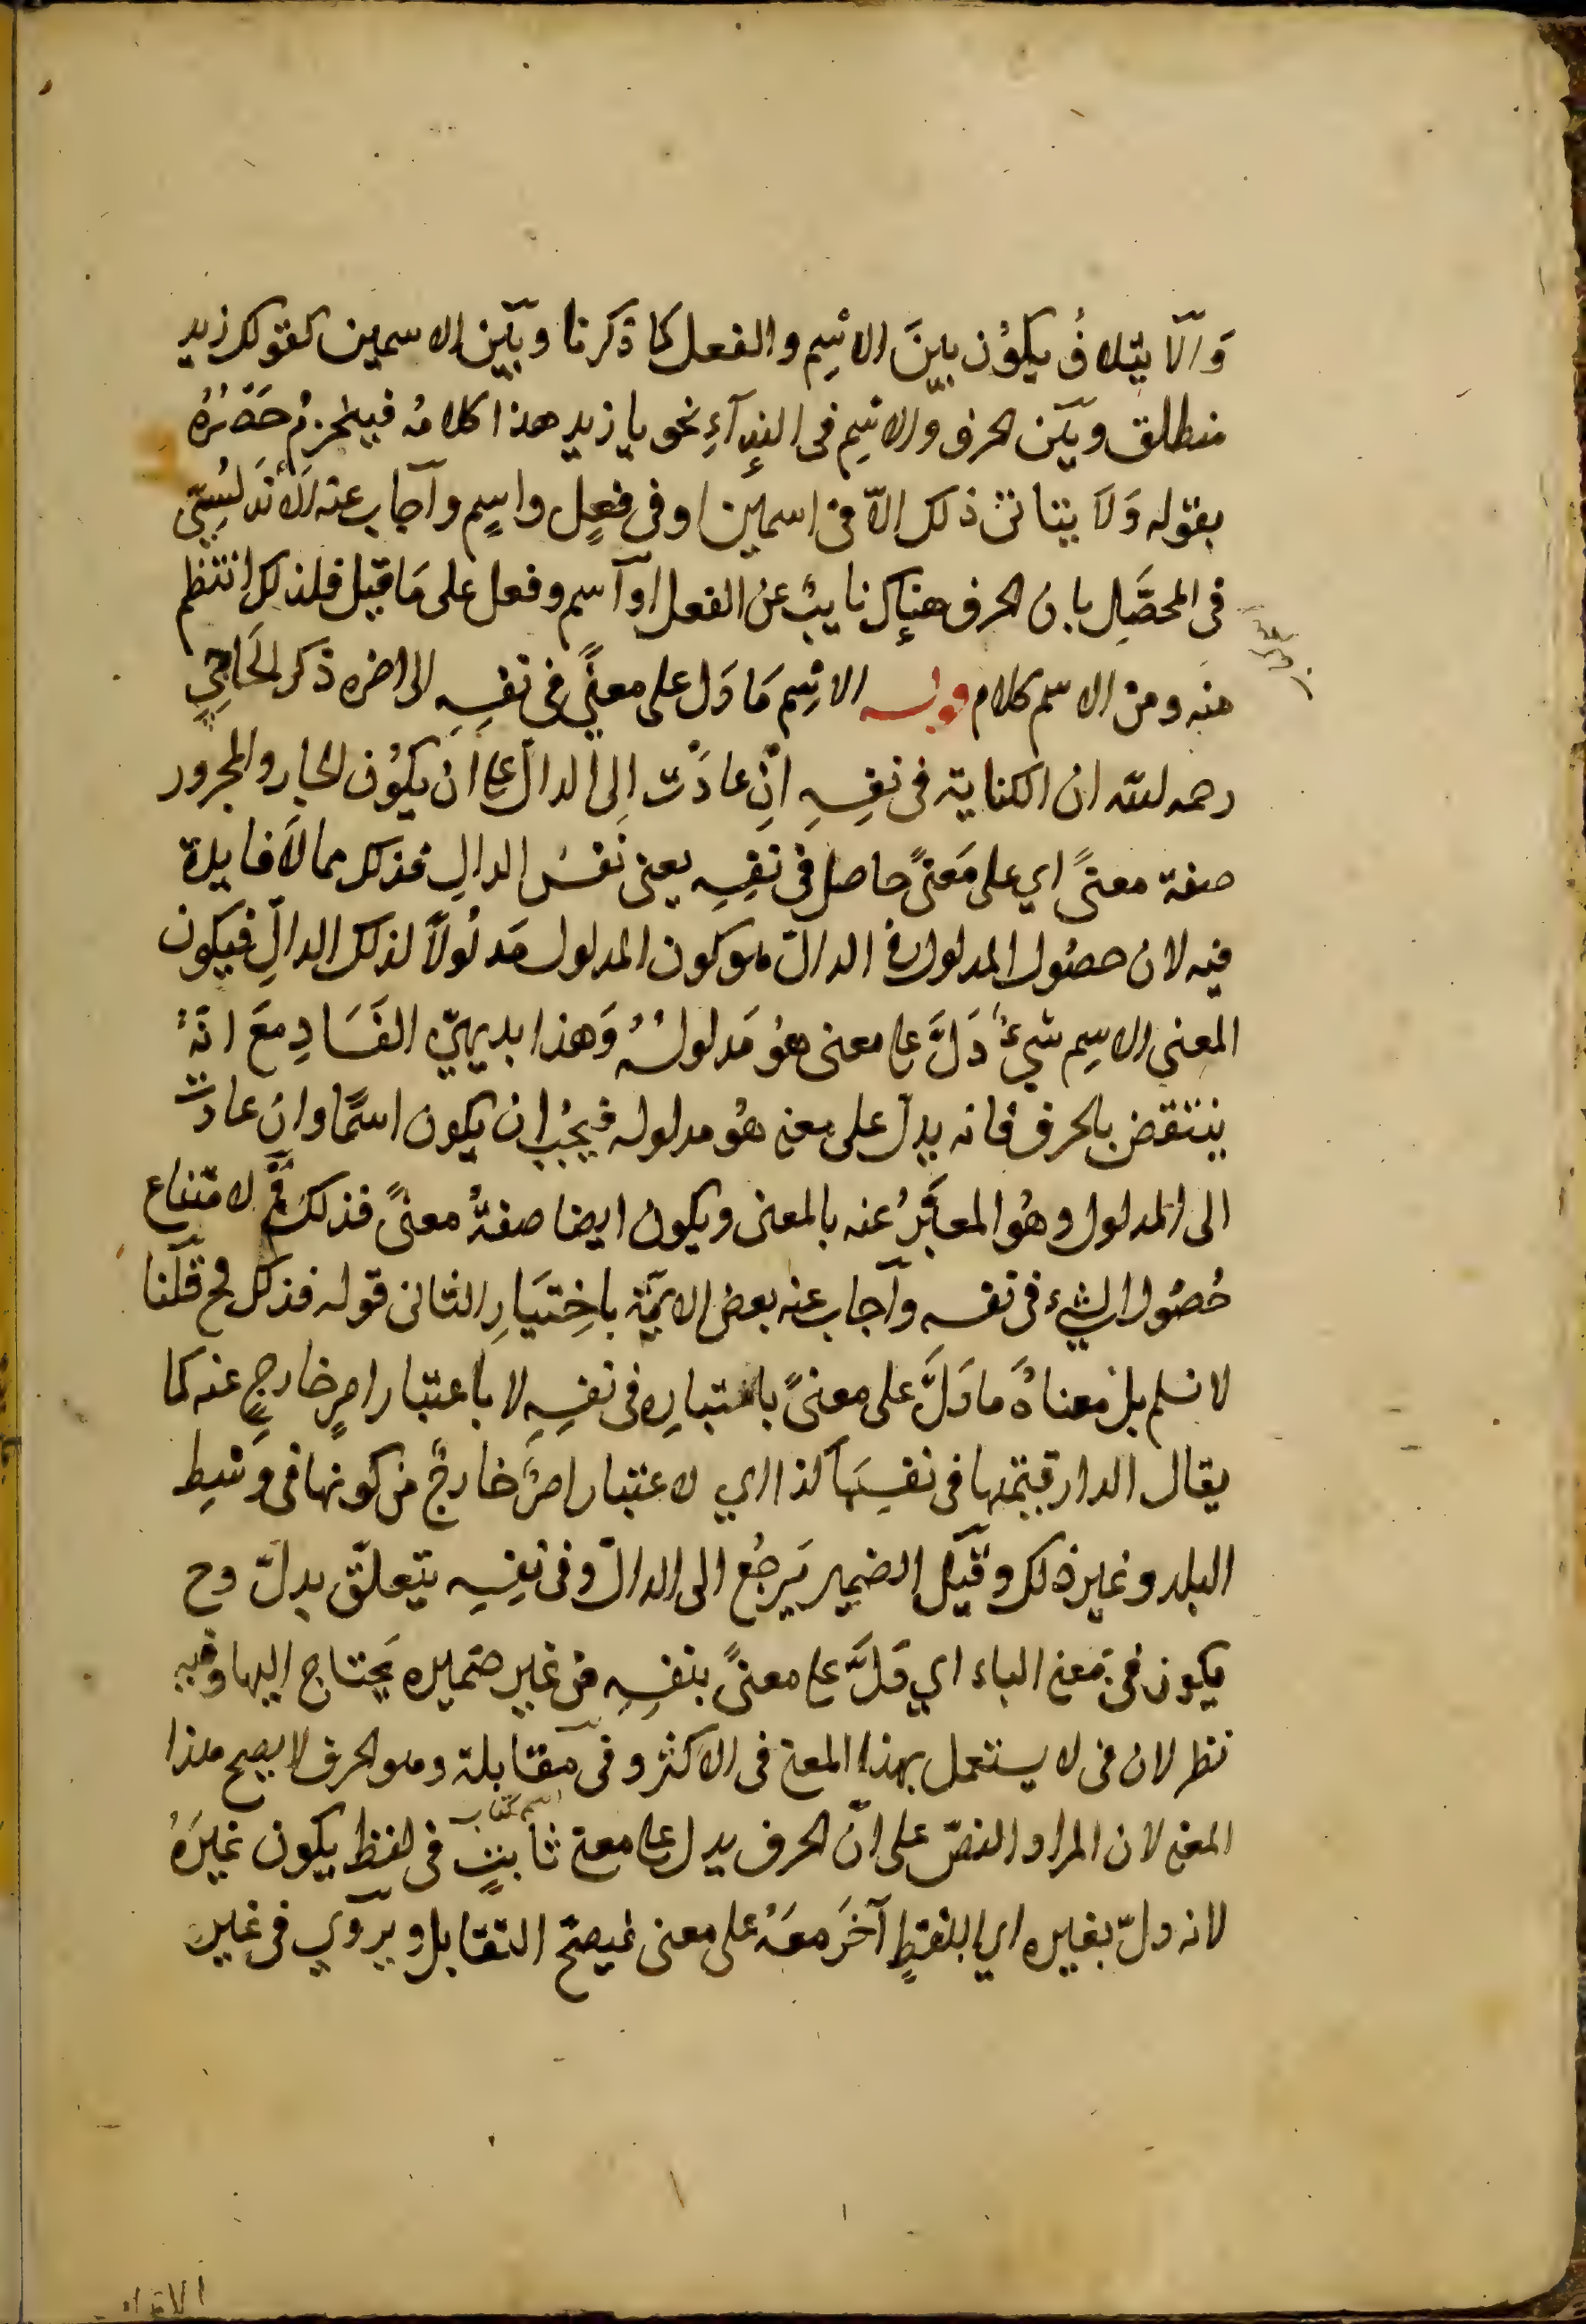 وَالَايتلافُ يكوُن بينَ الاسْمِ والفعل كما ذكرنا وبَيْن الاسمين كقولك زيد
منطلق وبَيْن الحرف والاسْمِ فى النِدآءِ نحو يا زيد هذا كلامُه فينخزمُ حَصْرُهُ
بقوله وَلَا يتاتى ذلك الاّ فى اسمين او فى فعلٍ واسمٍ وآجاب عنه الأَنْدَلُسِىّ
فى المحصَّلِ بان الحرف هناك نايبٌ عن الفعل او آسم وفعل على مَا قيل فلذلك انتظم
منه ومن الاسم كلام قوله الاسْمِ مَا دَل على معنىً فى نفسِهِ الى اخره ذكر الحَاجِبى
رحمه الله ان الكناية فى نفسِهِ انْ عادَت اِلى الدالّ على اَن يكوُن الجار والمجرور
صفة معنىً اي على مَعنىً حاصل فى نفسِهِ يعنى نَفسْ الدالِ فذلك مما لَا فايدة
فيه لان حصُول المدلول فى الدالّ هو كون المدلول مَدلُولاً لذلك الدالِّ فيكون
المعنى الاسِم شئُ دَلَّ على معنى هوُ مَدلولُهُ وَهذا بديهيّ الفَسَادِ معَ انَهُ
ينتقض بالحرف فانه يدل على معنى هوُ مدلوله فيجبُ ان يكون اسمًا وان عادت
الى المدلول وهوُ المعبَّرُ عنه بالمعنى ويكون ايضا صفةُ معنىً فذلك مح لامتناع
حُصُول الشىء فى نفسه وآجاب عنه بعض الايمّة باخِتيَارِ الثانى قوله فذلك مح قلنا
لا نسلم بل معناهُ ما دَلَّ على معنىً باعتبارِه فى نفسِهِ لا باعتبار امرٍ خارجٍ عنه كما
يقال الدار قيمتها فى نفسِهَا كذا اي لا عتبار امرٌ خارجٌ من كونها فى وَسَطِ
البلد وغير ذلك وقيل الضمير يَرجُع الى الدالّ وفى نفِسِه يتعلّق بدلّ وح
يكون فى بَمعنى الباء اي دَلَّ على معنىً بنفسِهِ من غير ضميره يَحتاج اليها وفيه
نظر لان فى لا يستعمل بهذا المعنى فى الاكثر وفى مقابلة وهو الحرف لا يصح هذا
المعنى لان المراد النصّ على انّ الحرف يدل على معنى ثابتٍ فى لفظ يكون غيرَهُ
اسم كتاب
لانه دلّ بغيره اي بلفظٍ آخَر معَهُ على معنى فيصحّ التقابل ويروي فى غير